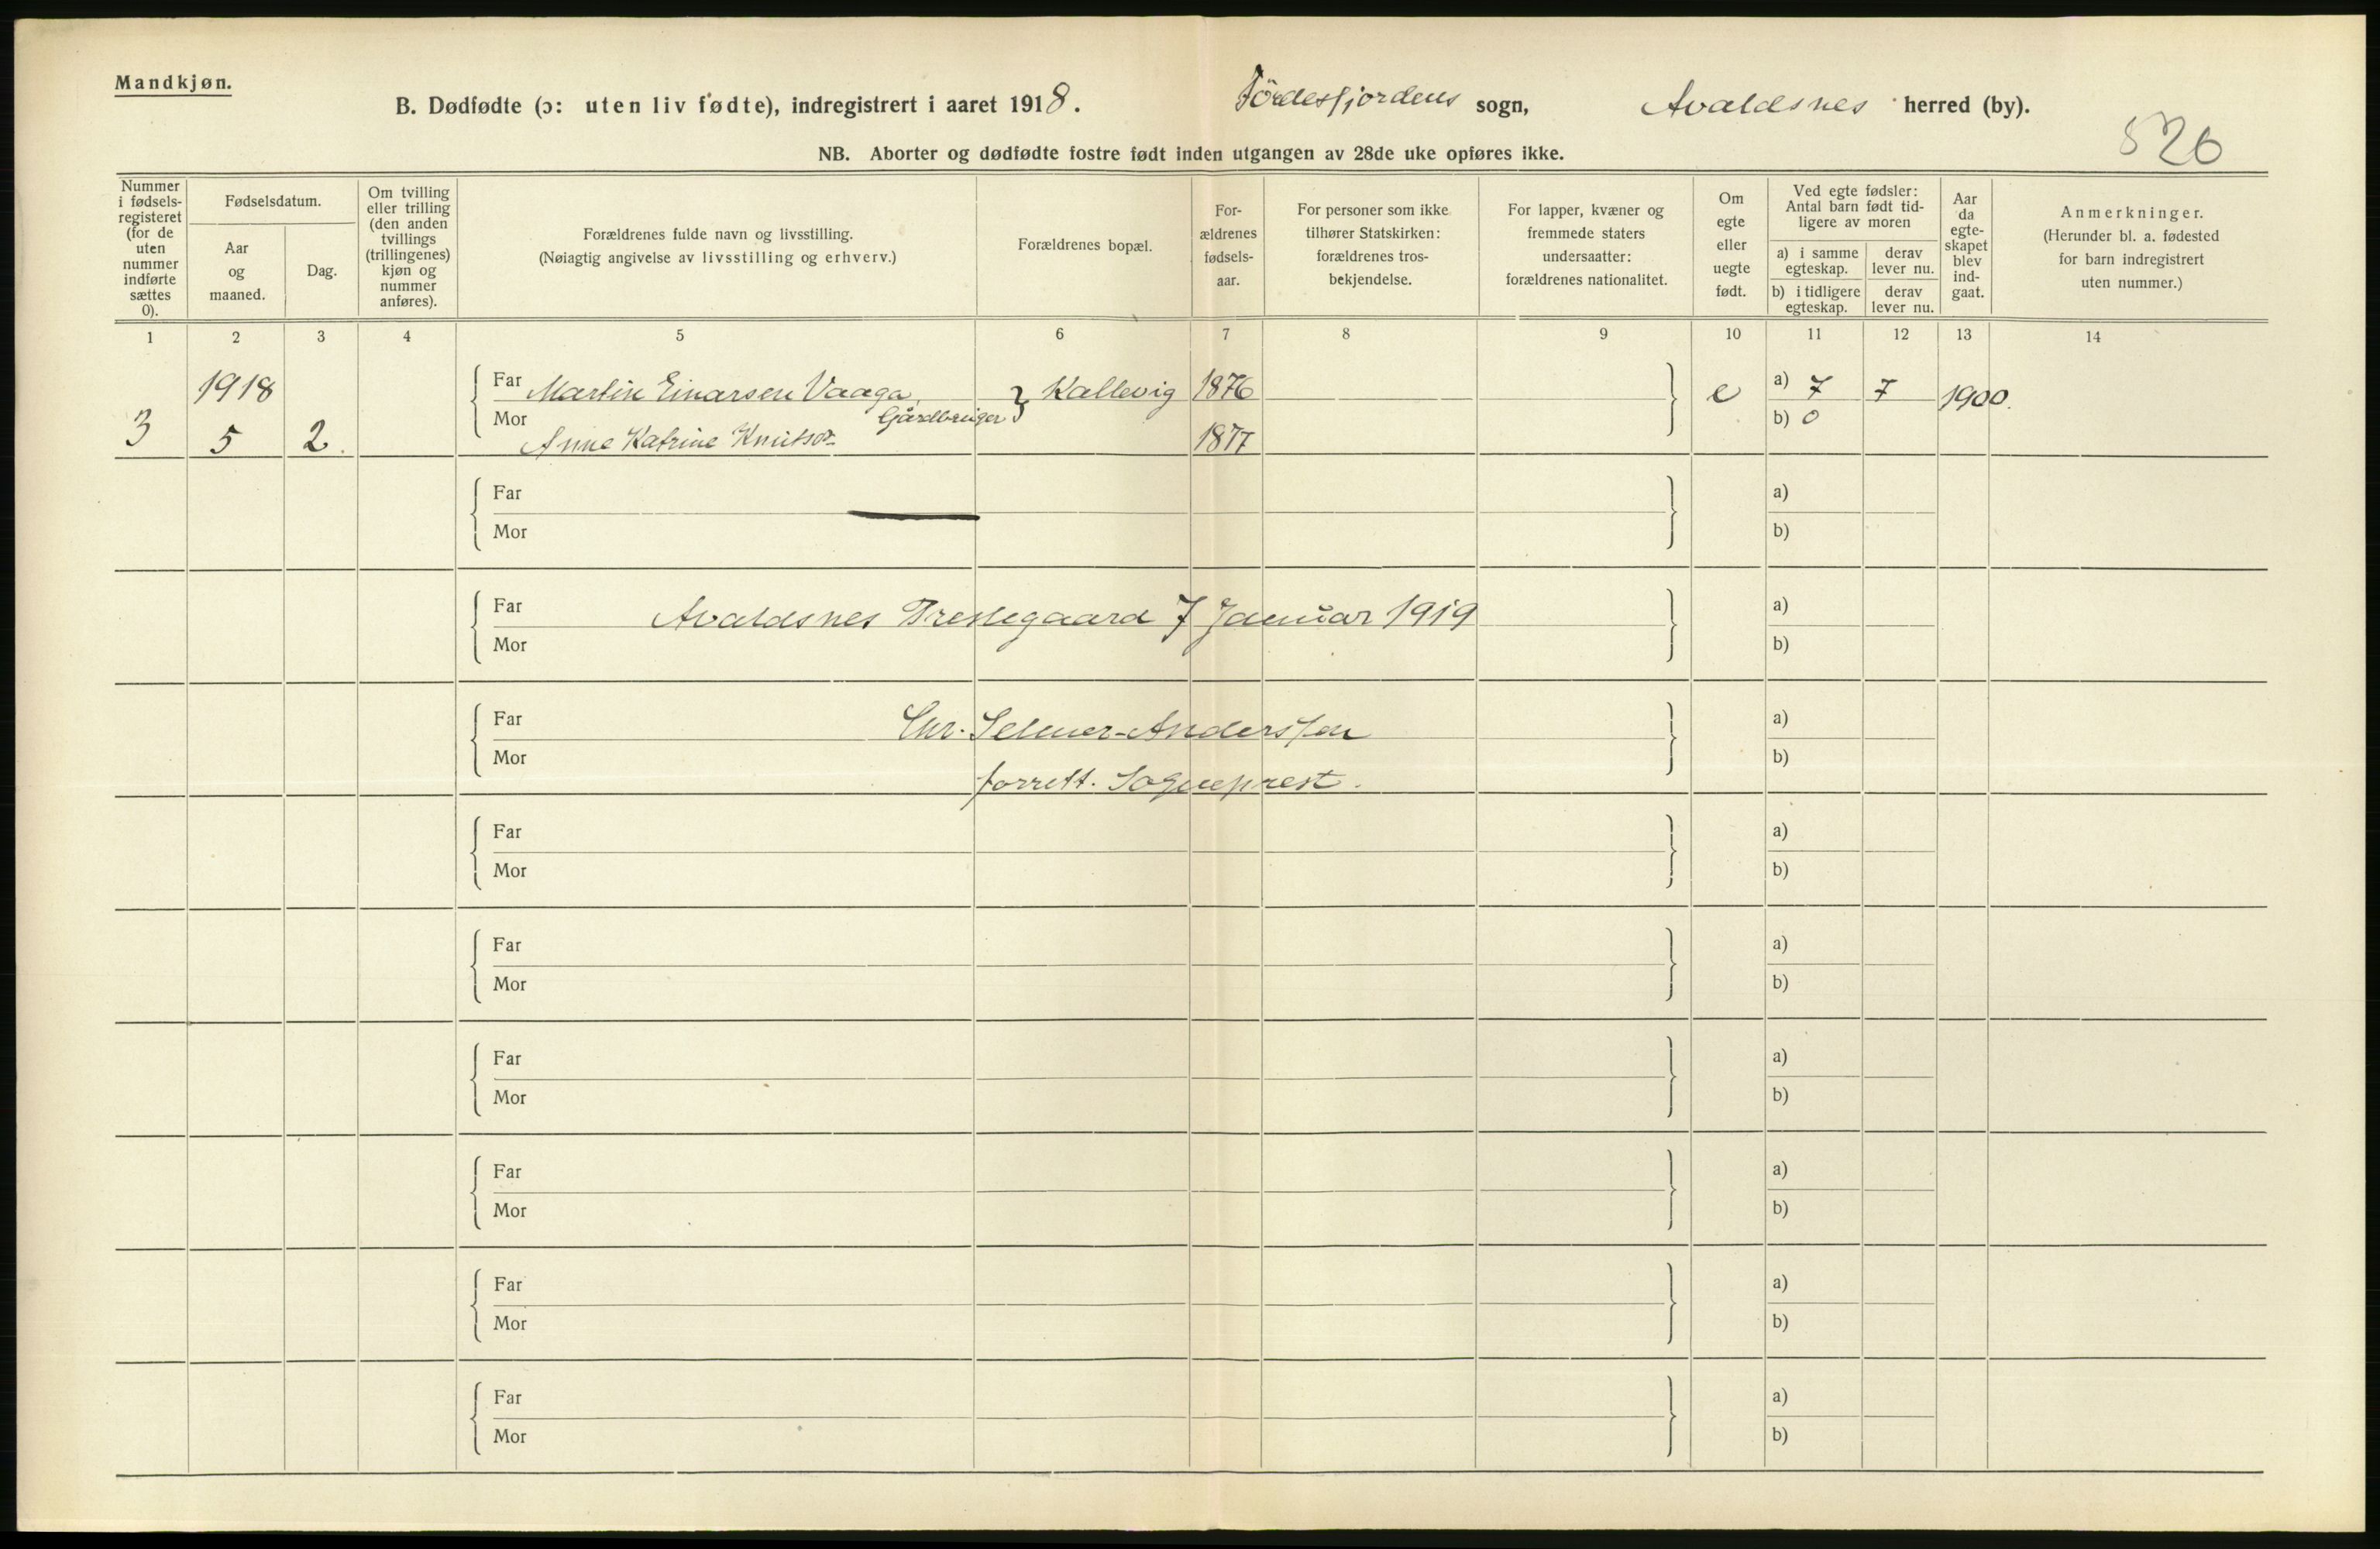 Mandkjøn.
B. Dødfødte (ɔ: uten liv fødte), indregistrert i aaret 1918. Førdesfjordens sogn, Avaldsnes herred (by).
526
NB. Aborter og dødfødte fostre født inden utgangen av 28de uke opføres ikke.
Nummer i fødsels-registeret (for de uten nummer indførte sættes 0).
Fødselsdatum.
Aar og maaned.
Dag.
Om tvilling eller trilling (den anden tvillings (trillingenes) kjøn og nummer anføres).
Forældrenes fulde navn og livsstilling.
(Nøiagtig angivelse av livsstilling og erhverv.)
Forældrenes bopæl.
For-ældrenes fødsels-aar.
For personer som ikke tilhører Statskirken: forældrenes tros-bekjendelse.
For lapper, kvæner og fremmede staters undersaatter: forældrenes nationalitet.
Om egte eller uegte født.
Ved egte fødsler: Antal barn født tid-ligere av moren
a) i samme egteskap.
derav lever nu.
b) i tidligere egteskap.
derav lever nu.
Aar da egte-skapet blev ind-gaat.
Anmerkninger.
(Herunder bl. a. fødested for barn indregistrert uten nummer.)
1 2 3 4 5 6 7 8 9 10 11 12 13 14
1918 Far Martin Einarsen Vaaga, Kallevig 1876 e a) 7 7 1900.
Gårdbruiger
3 5 2. Mor Anne Katrine Knutsdr. 1877 b) 0
Far a)
Mor b)
Far Avaldsnes Prestegaard 7 Januar 1919 a)
Mor b)
Far Chr. Selmer-Anderssen a)
Mor b)
forrett. Sogneprest.
Far a)
Mor b)
Far a)
Mor b)
Far a)
Mor b)
Far a)
Mor b)
Far a)
Mor b)
Far a)
Mor b)